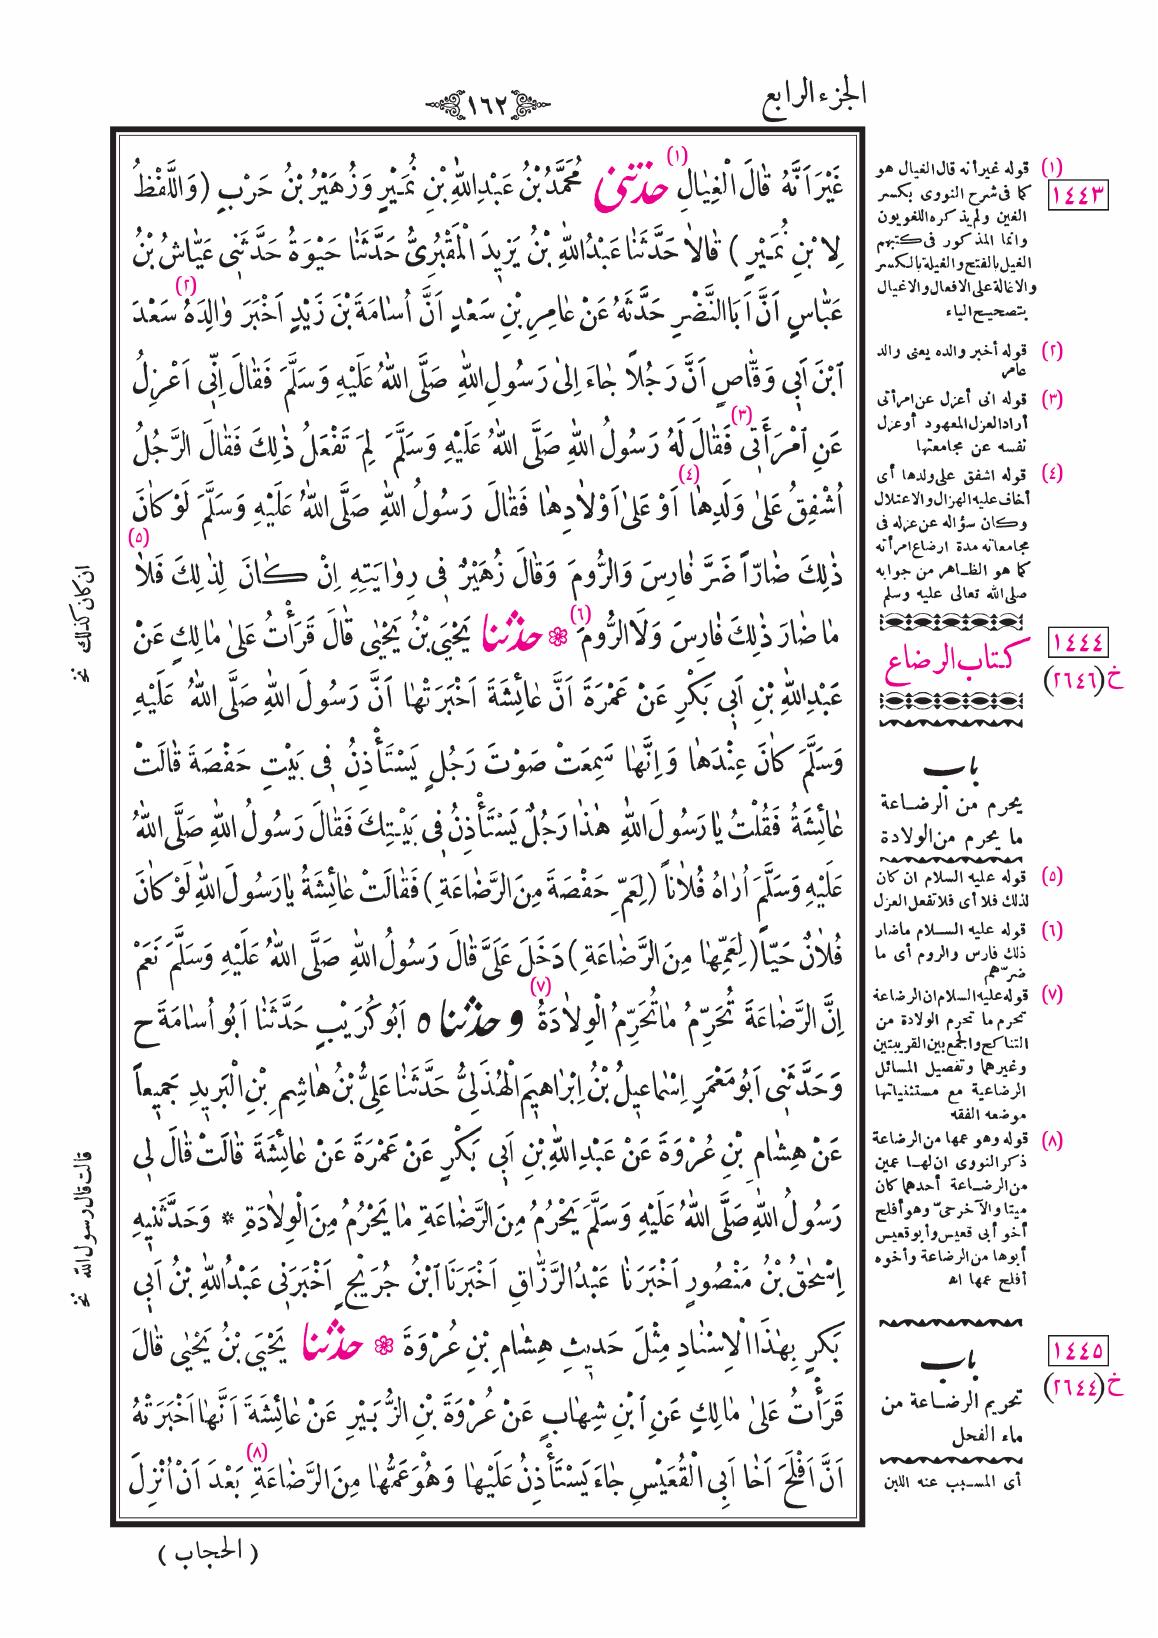 الجزء الرابع
١٦٢
غَيْرَ اَنَّهُ قَالَ الْغِيَالِ (١) حَدَّثَنِى مُحَمَّدُ بْنُ عَبْدِ اللّٰهِ بْنِ نُمَيْرٍ وَزُهَيْرُ بْنُ حَرْبٍ (وَاللَّفْظُ
لِابْنِ نُمَيْرٍ) قَالَا حَدَّثَنَا عَبْدُ اللّٰهِ بْنُ يَزِيدَ الْمَقْبُرِىُّ حَدَّثَنَا حَيْوَةُ حَدَّثَنِى عَيَّاشُ بْنُ
عَبَّاسٍ اَنَّ اَبَا النَّضْرِ حَدَّثَهُ عَنْ عَامِرِ بْنِ سَعْدٍ اَنَّ اُسَامَةَ بْنَ زَيْدٍ اَخْبَرَ وَالِدَهُ (٢) سَعْدَ
ابْنَ اَبِى وَقَّاصٍ اَنَّ رَجُلاً جَاءَ اِلَى رَسُولِ اللّٰهِ صَلَّى اللّٰهُ عَلَيْهِ وَسَلَّمَ فَقَالَ اِنِّى اَعْزِلُ
عَنِ امْرَأَتِى (٣) فَقَالَ لَهُ رَسُولُ اللّٰهِ صَلَّى اللّٰهُ عَلَيْهِ وَسَلَّمَ لِمَ تَفْعَلُ ذٰلِكَ فَقَالَ الرَّجُلُ
اُشْفِقُ عَلَى وَلَدِهَا (٤) اَوْ عَلَى اَوْلَادِهَا فَقَالَ رَسُولُ اللّٰهِ صَلَّى اللّٰهُ عَلَيْهِ وَسَلَّمَ لَوْ كَانَ
ذٰلِكَ ضَارّاً ضَرَّ فَارِسَ وَالرُّومَ وَقَالَ زُهَيْرٌ فِى رِوَايَتِهِ اِنْ كَانَ لِذٰلِكَ فَلَا (٥)
مَا ضَارَ ذٰلِكَ فَارِسَ وَلَا الرُّومَ (٦) ۞ حَدَّثَنَا يَحْيَى بْنُ يَحْيٰى قَالَ قَرَأْتُ عَلَى مَالِكٍ عَنْ
عَبْدِ اللّٰهِ بْنِ اَبِى بَكْرٍ عَنْ عَمْرَةَ اَنَّ عَائِشَةَ اَخْبَرَتْهَا اَنَّ رَسُولَ اللّٰهِ صَلَّى اللّٰهُ عَلَيْهِ
وَسَلَّمَ كَانَ عِنْدَهَا وَاِنَّهَا سَمِعَتْ صَوْتَ رَجُلٍ يَسْتَأْذِنُ فِى بَيْتِ حَفْصَةَ قَالَتْ
عَائِشَةُ فَقُلْتُ يَا رَسُولَ اللّٰهِ هٰذَا رَجُلٌ يَسْتَأْذِنُ فِى بَيْتِكَ فَقَالَ رَسُولُ اللّٰهِ صَلَّى اللّٰهُ
عَلَيْهِ وَسَلَّمَ اُرَاهُ فُلَاناً (لِعَمِّ حَفْصَةَ مِنَ الرَّضَاعَةِ) فَقَالَتْ عَائِشَةُ يَا رَسُولَ اللّٰهِ لَوْ كَانَ
فُلَانٌ حَيّاً (لِعَمِّهَا مِنَ الرَّضَاعَةِ) دَخَلَ عَلَىَّ قَالَ رَسُولُ اللّٰهِ صَلَّى اللّٰهُ عَلَيْهِ وَسَلَّمَ نَعَمْ
اِنَّ الرَّضَاعَةَ تُحَرِّمُ مَا تُحَرِّمُ الْوِلَادَةُ (٧) و حدثنا ٥ اَبُو كُرَيْبٍ حَدَّثَنَا اَبُو اُسَامَةَ ح
وَحَدَّثَنِى اَبُو مَعْمَرٍ اِسْمَاعِيلُ بْنُ اِبْرَاهِيمَ الْهُذَلِىُّ حَدَّثَنَا عَلِىُّ بْنُ هَاشِمِ بْنِ الْبَرِيدِ جَمِيعاً
عَنْ هِشَامِ بْنِ عُرْوَةَ عَنْ عَبْدِ اللّٰهِ بْنِ اَبِى بَكْرٍ عَنْ عَمْرَةَ عَنْ عَائِشَةَ قَالَتْ قَالَ لِى
رَسُولُ اللّٰهِ صَلَّى اللّٰهُ عَلَيْهِ وَسَلَّمَ يَحْرُمُ مِنَ الرَّضَاعَةِ مَا يَحْرُمُ مِنَ الْوِلَادَةِ * وَحَدَّثَنِيهِ
اِسْحٰقُ بْنُ مَنْصُورٍ اَخْبَرَنَا عَبْدُ الرَّزَّاقِ اَخْبَرَنَا ابْنُ جُرَيْجٍ اَخْبَرَنِى عَبْدُ اللّٰهِ بْنُ اَبِى
بَكْرٍ بِهٰذَا الْاِسْنَادِ مِثْلَ حَدِيثِ هِشَامِ بْنِ عُرْوَةَ ۞ حَدَّثَنَا يَحْيَى بْنُ يَحْيٰى قَالَ
قَرَأْتُ عَلَى مَالِكٍ عَنِ ابْنِ شِهَابٍ عَنْ عُرْوَةَ بْنِ الزُّبَيْرِ عَنْ عَائِشَةَ اَنَّهَا اَخْبَرَتْهُ
اَنَّ اَفْلَحَ اَخَا اَبِى الْقُعَيْسِ جَاءَ يَسْتَأْذِنُ عَلَيْهَا وَهُوَ عَمُّهَا مِنَ الرَّضَاعَةِ (٨) بَعْدَ اَنْ اُنْزِلَ
( الحجاب )
(١) قوله غير أنه قال الغيال هو
١٤٤٣
كما فى شرح النووى بكسر
الغين ولم يذكره اللغويون
وانما المذكور فى كتبهم
الغيل بالفتح والغيلة بالكسر
والاغالة على الافعال والاغيال
بتصحيح الياء
(٢) قوله أخبر والده يعنى والد
عامر
(٣) قوله انى أعزل عن امرأتى
أراد العزل المعهود أو عزل
نفسه عن مجامعتها
(٤) قوله اشفق على ولدها أى
أخاف عليه الهزال والاعتلال
وكان سؤاله عن عزله فى
مجامعاته مدة ارضاع امرأته
كما هو الظاهر من جوابه
صلى الله تعالى عليه وسلم
١٤٤٤
كتاب الرضاع
خ (٢٦٤٦)
باب
يحرم من الرضاعة
ما يحرم من الولادة
(٥) قوله عليه السلام ان كان
لذلك فلا أى فلا تفعل العزل
(٦) قوله عليه السلام ماضار
ذلك فارس والروم أى ما
ضرّهم
(٧) قوله عليه السلام ان الرضاعة
تحرم ما تحرم الولادة من
التناكح والجمع بين القريبتين
وغيرهما وتفصيل المسائل
الرضاعية مع مستثنياتها
موضعه الفقه
(٨) قوله وهو عمها من الرضاعة
ذكر النووى ان لها عمين
من الرضاعة أحدهما كان
ميتا والآخر حىّ وهو أفلح
أخو أبى قعيس وأبو قعيس
أبوها من الرضاعة وأخوه
أفلح عمها اه
١٤٤٥
باب
خ (٢٦٤٤)
تحريم الرضاعة من
ماء الفحل
أى المسبب عنه اللبن
ان كان كذلك نخ
قالت قال رسول الله نخ